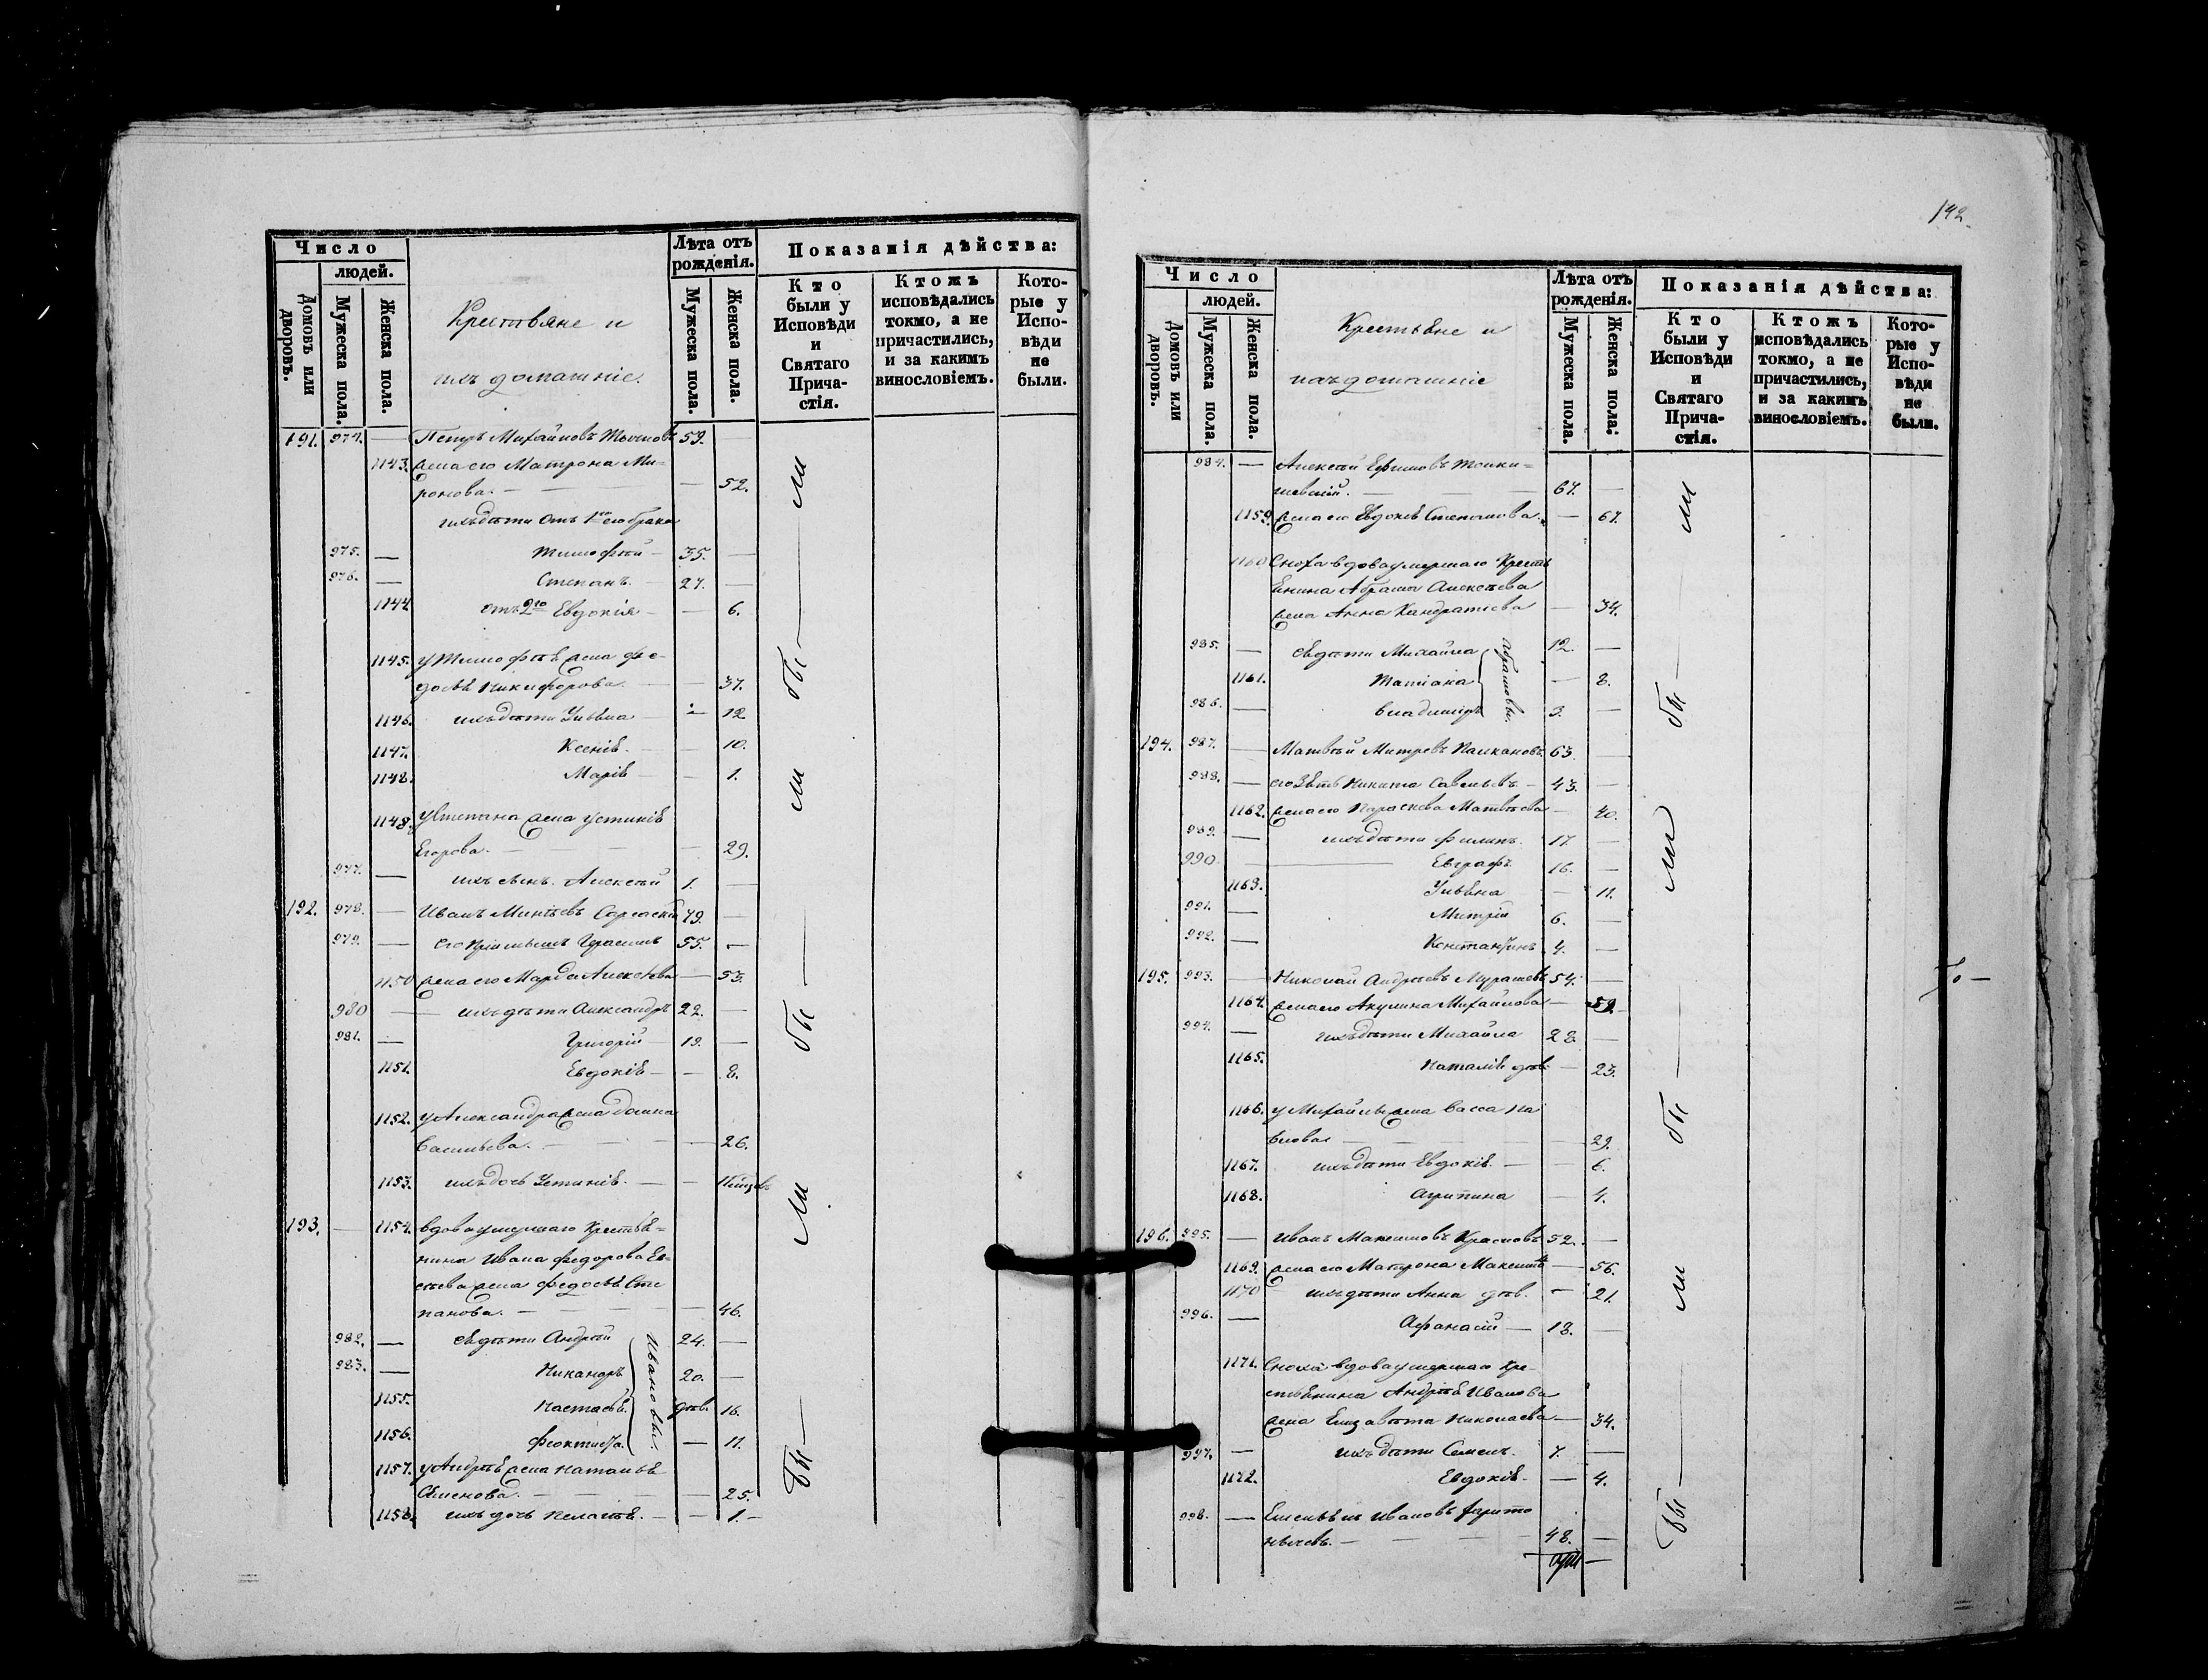 Число
людей.
Домовъ или дворовъ.
Мужеска пола.
Женска пола.
Крестьяне и
ихъ домашніе.
Лѣта отъ рожденія.
Мужеска пола.
Женска пола.
Показанія дѣйства:
Кто были у Исповѣди и Святаго Причастія.
Ктожъ исповѣдались токмо, а не причастились, и за какимъ винословіемъ.
Которые у Исповѣди не были.
191. 974. — Петръ Михайловъ 59.
1143. жена его Матрона Ми-
ронова. — — 52.
ихъ дѣти отъ 1го его брака
975. — Тимофѣй — 35. —
976. — Степанъ. — 27. —
1144 отъ 2го Евдокія — — 6.
1145. у Тимофѣя жена Фе-
досья Никифорова. — — 37.
1146. ихъ дѣти Ульяна — — 12
1147. Ксенія. — — 10.
1148. Марія — — 1.
1148. у Степана жена Устинія
Егорова. — — 29.
977. — ихъ сынъ Алексѣй 1. —
192. 978. — Иванъ 79. —
979. — его Герасимъ 55. —
1150 жена его Марѳа Алексѣева — 53.
980 — ихъ дѣти Александръ 22. —
981. — Григорій — 19. —
1151. Евдокія — — 8.
1152. у Александра жена Домна
Васильева. — — 26.
1153. ихъ дочь Устинія. — —
193. — 1154. вдова умершаго крестья-
нина Ивана Федорова Ев-
сѣева жена Федосья Сте
панова. — — 46.
982. — ея дѣти Андрей 24. —
983. — Никаноръ 20. —
1155. Настасья. дѣв. 16.
1156. Феоктиста. — 11.
Ивановы.
1157. у Андрея жена Наталья
Семенова. — — 25.
1158. ихъ дочь Пелагея. — — 1. —
Бы — ли
бы — ли
бы — ли
142.
Число
людей.
Домовъ или дворовъ.
Мужеска пола.
Женска пола.
Крестьяне и
ихъ домашніе
Лѣта отъ рожденія.
Мужеска пола.
Женска пола.
Показанія дѣйства:
Кто были у Исповѣди и Святаго Причастія.
Ктожъ исповѣдались токмо, а не причастились, и за какимъ винословіемъ.
Которые у Исповѣди не были.
984. — Алексѣй Ефимовъ
67. —
1159. жена его Евдокія Степанова. — 67.
1160 Сноха вдова умершаго кресть
янина Абрама Алексѣева
жена Анна Кандратіева — 34.
985. — ея дѣти Михайла 12. —
1161. Татіана — 8.
986. — Владимиръ 3. —
Абрамовы.
194. 987. — Матвѣй Митревъ Палкановъ 63. —
988. — его зять Никита Савельевъ — 43. —
1162. жена его Параскева Матвѣева — 40.
989. — ихъ дѣти Филипъ. 17. —
990. — Евграфъ 16. —
1163. Ульяна — 11.
991. — Митрій 6. —
992. — Констанѣинъ 4. —
195. 993. — Николай Андреевъ Мурашевъ 54. —
1164. жена его Акулина Михайлова — 59.
994. — ихъ дѣти Михайла 28 —
1165. Наталія дѣв. — 23.
1166. у Михайлы жена Васса Па
влова — — 29.
1167. ихъ дѣти Евдокія. — — 6.
1168. Агрипина — 4.
196. 995. — Иванъ Максимовъ Красновъ 52. —
1169. жена его Матрона Максим. — 56.
1170 ихъ дѣти Анна дѣв. — 21.
996. — Афанасій — 18. —
1171. Сноха вдова умершаго кре-
стьянина Андрея Иванова
жена Елизавѣта Николаева — 34.
997. — ихъ дѣти Семенъ. 7. —
1172. Евдокія. — 4.
998. — Емельянъ Ивановъ Харито
нычевъ. — — 48. —
Бы — ли
бы — ли
бы — ли